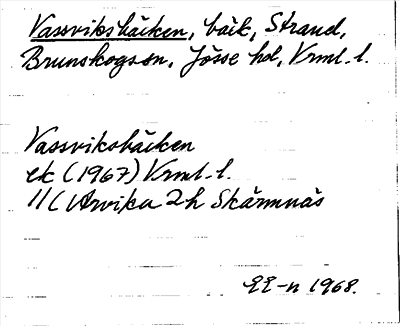 Vassviksbäcken, bäck, Strand,
Brunskogs sn, Jösse hd, Vrml. l.
Vassviksbäcken
ek (1967) Vrml. l.
11C Arvika 2h Skärmnäs
EE-n 1968.